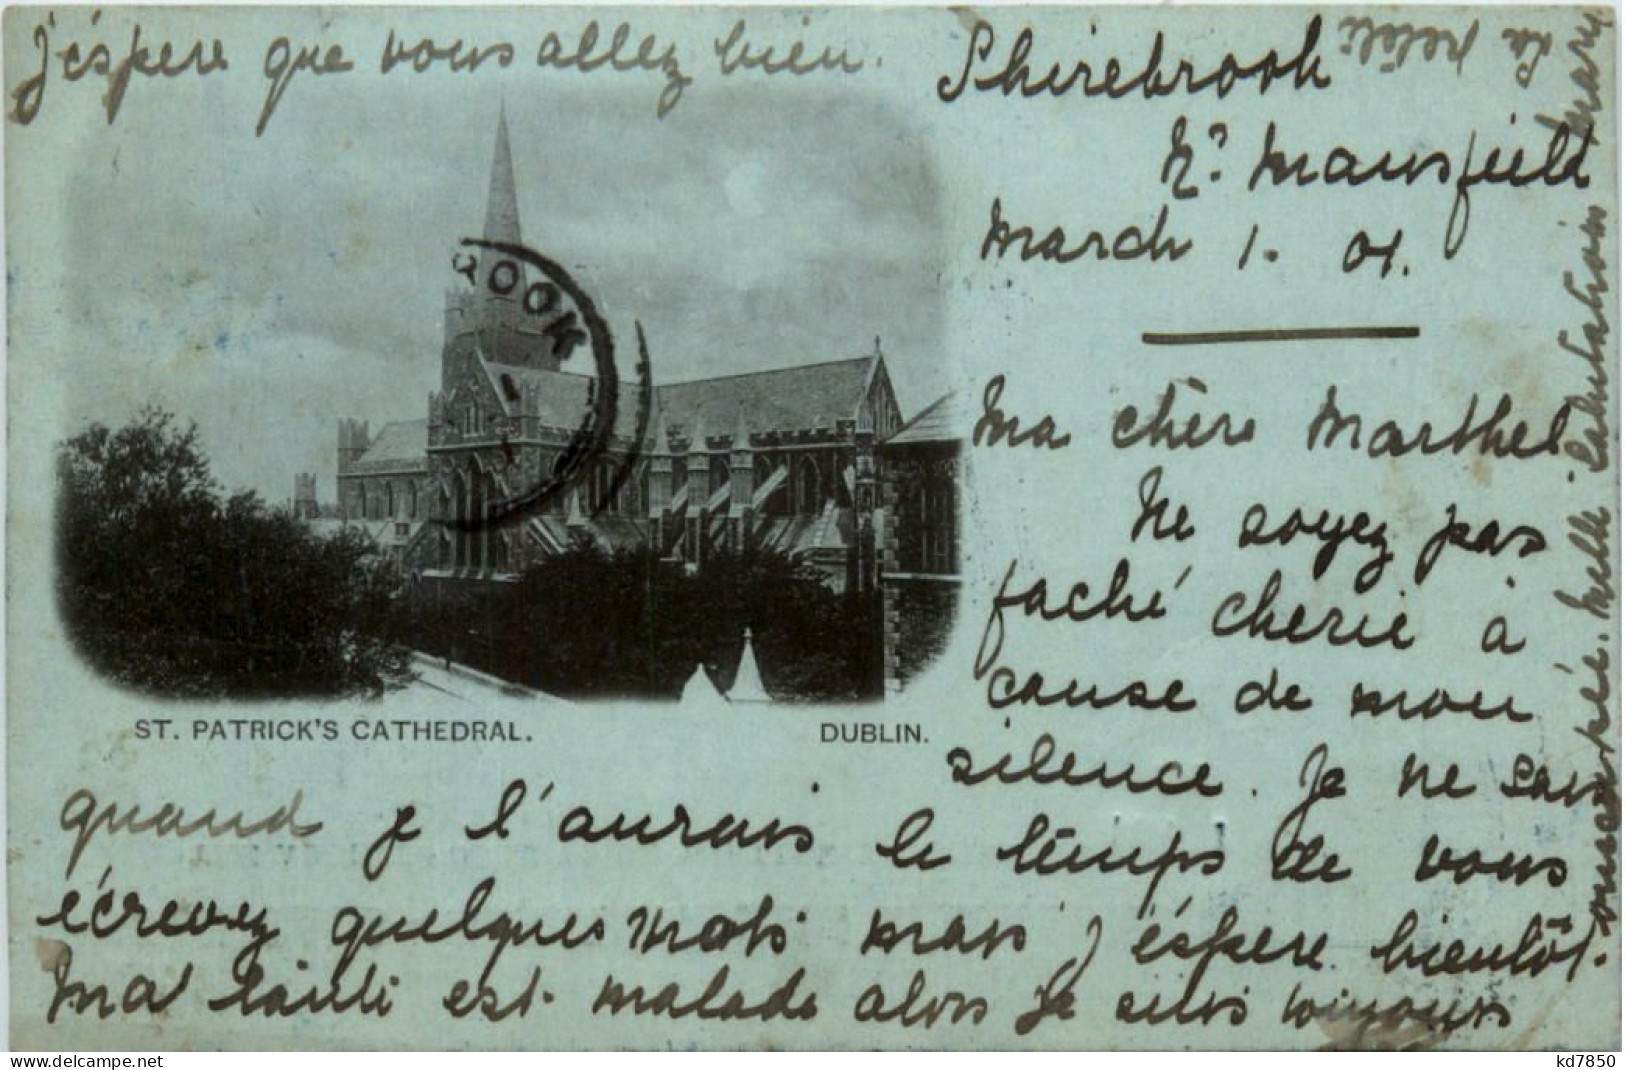 Shirebrook
Nr. Mansfield
March 1. 01.
Ma chère Marthel
Ne soyez pas
faché cherie à
cause de mon
silence. Je ne sais
quand je l'aurais le temps de vous
écrevez quelques mots mais j'éspere bientôt.
Ma tante est malade alors je suis toujours
occupée. Mille salutations Mary
La petite
j'éspere que vous allez bien.
ROOK
ST. PATRICK'S CATHEDRAL. DUBLIN.
www.delcampe.net
kd7850